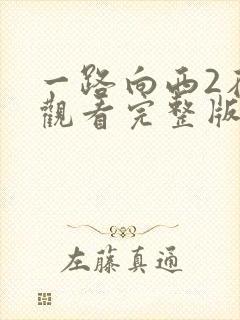 一路向西2
觀看完整版
左藤真通